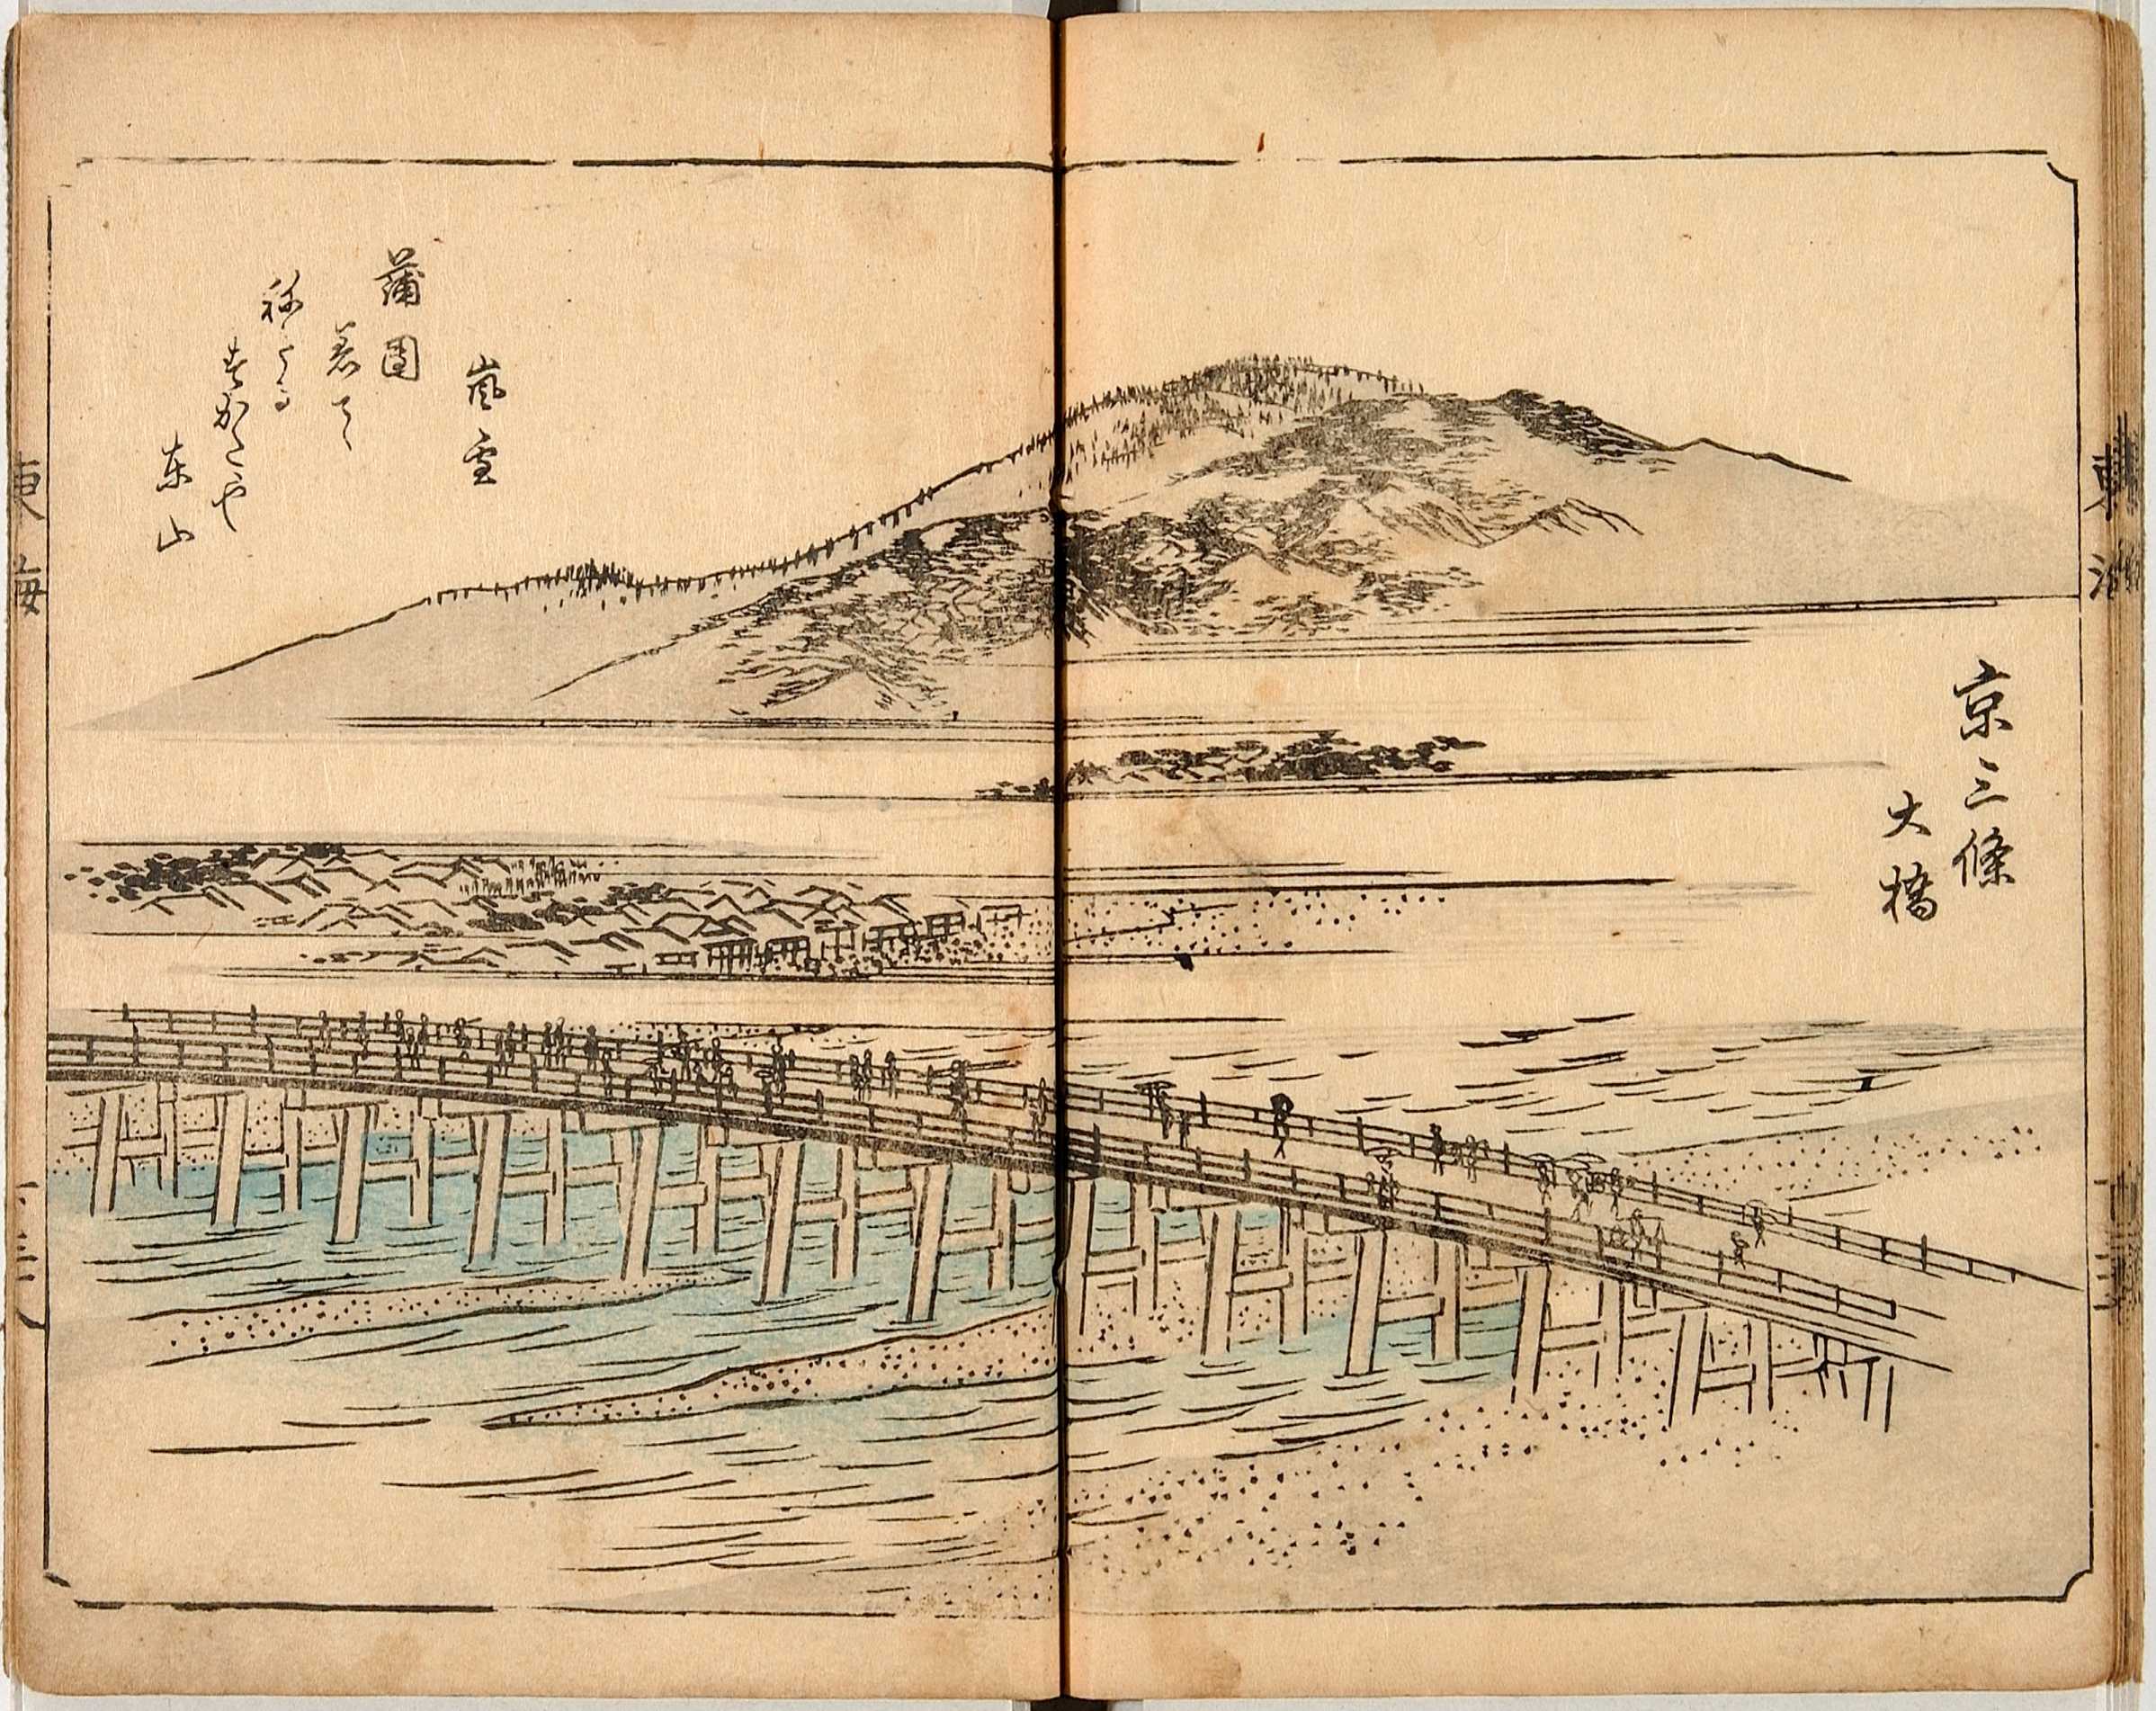 京三條
大橋
嵐雪
蒲団
着て
ねたる
すかたや
東山
東海
東海